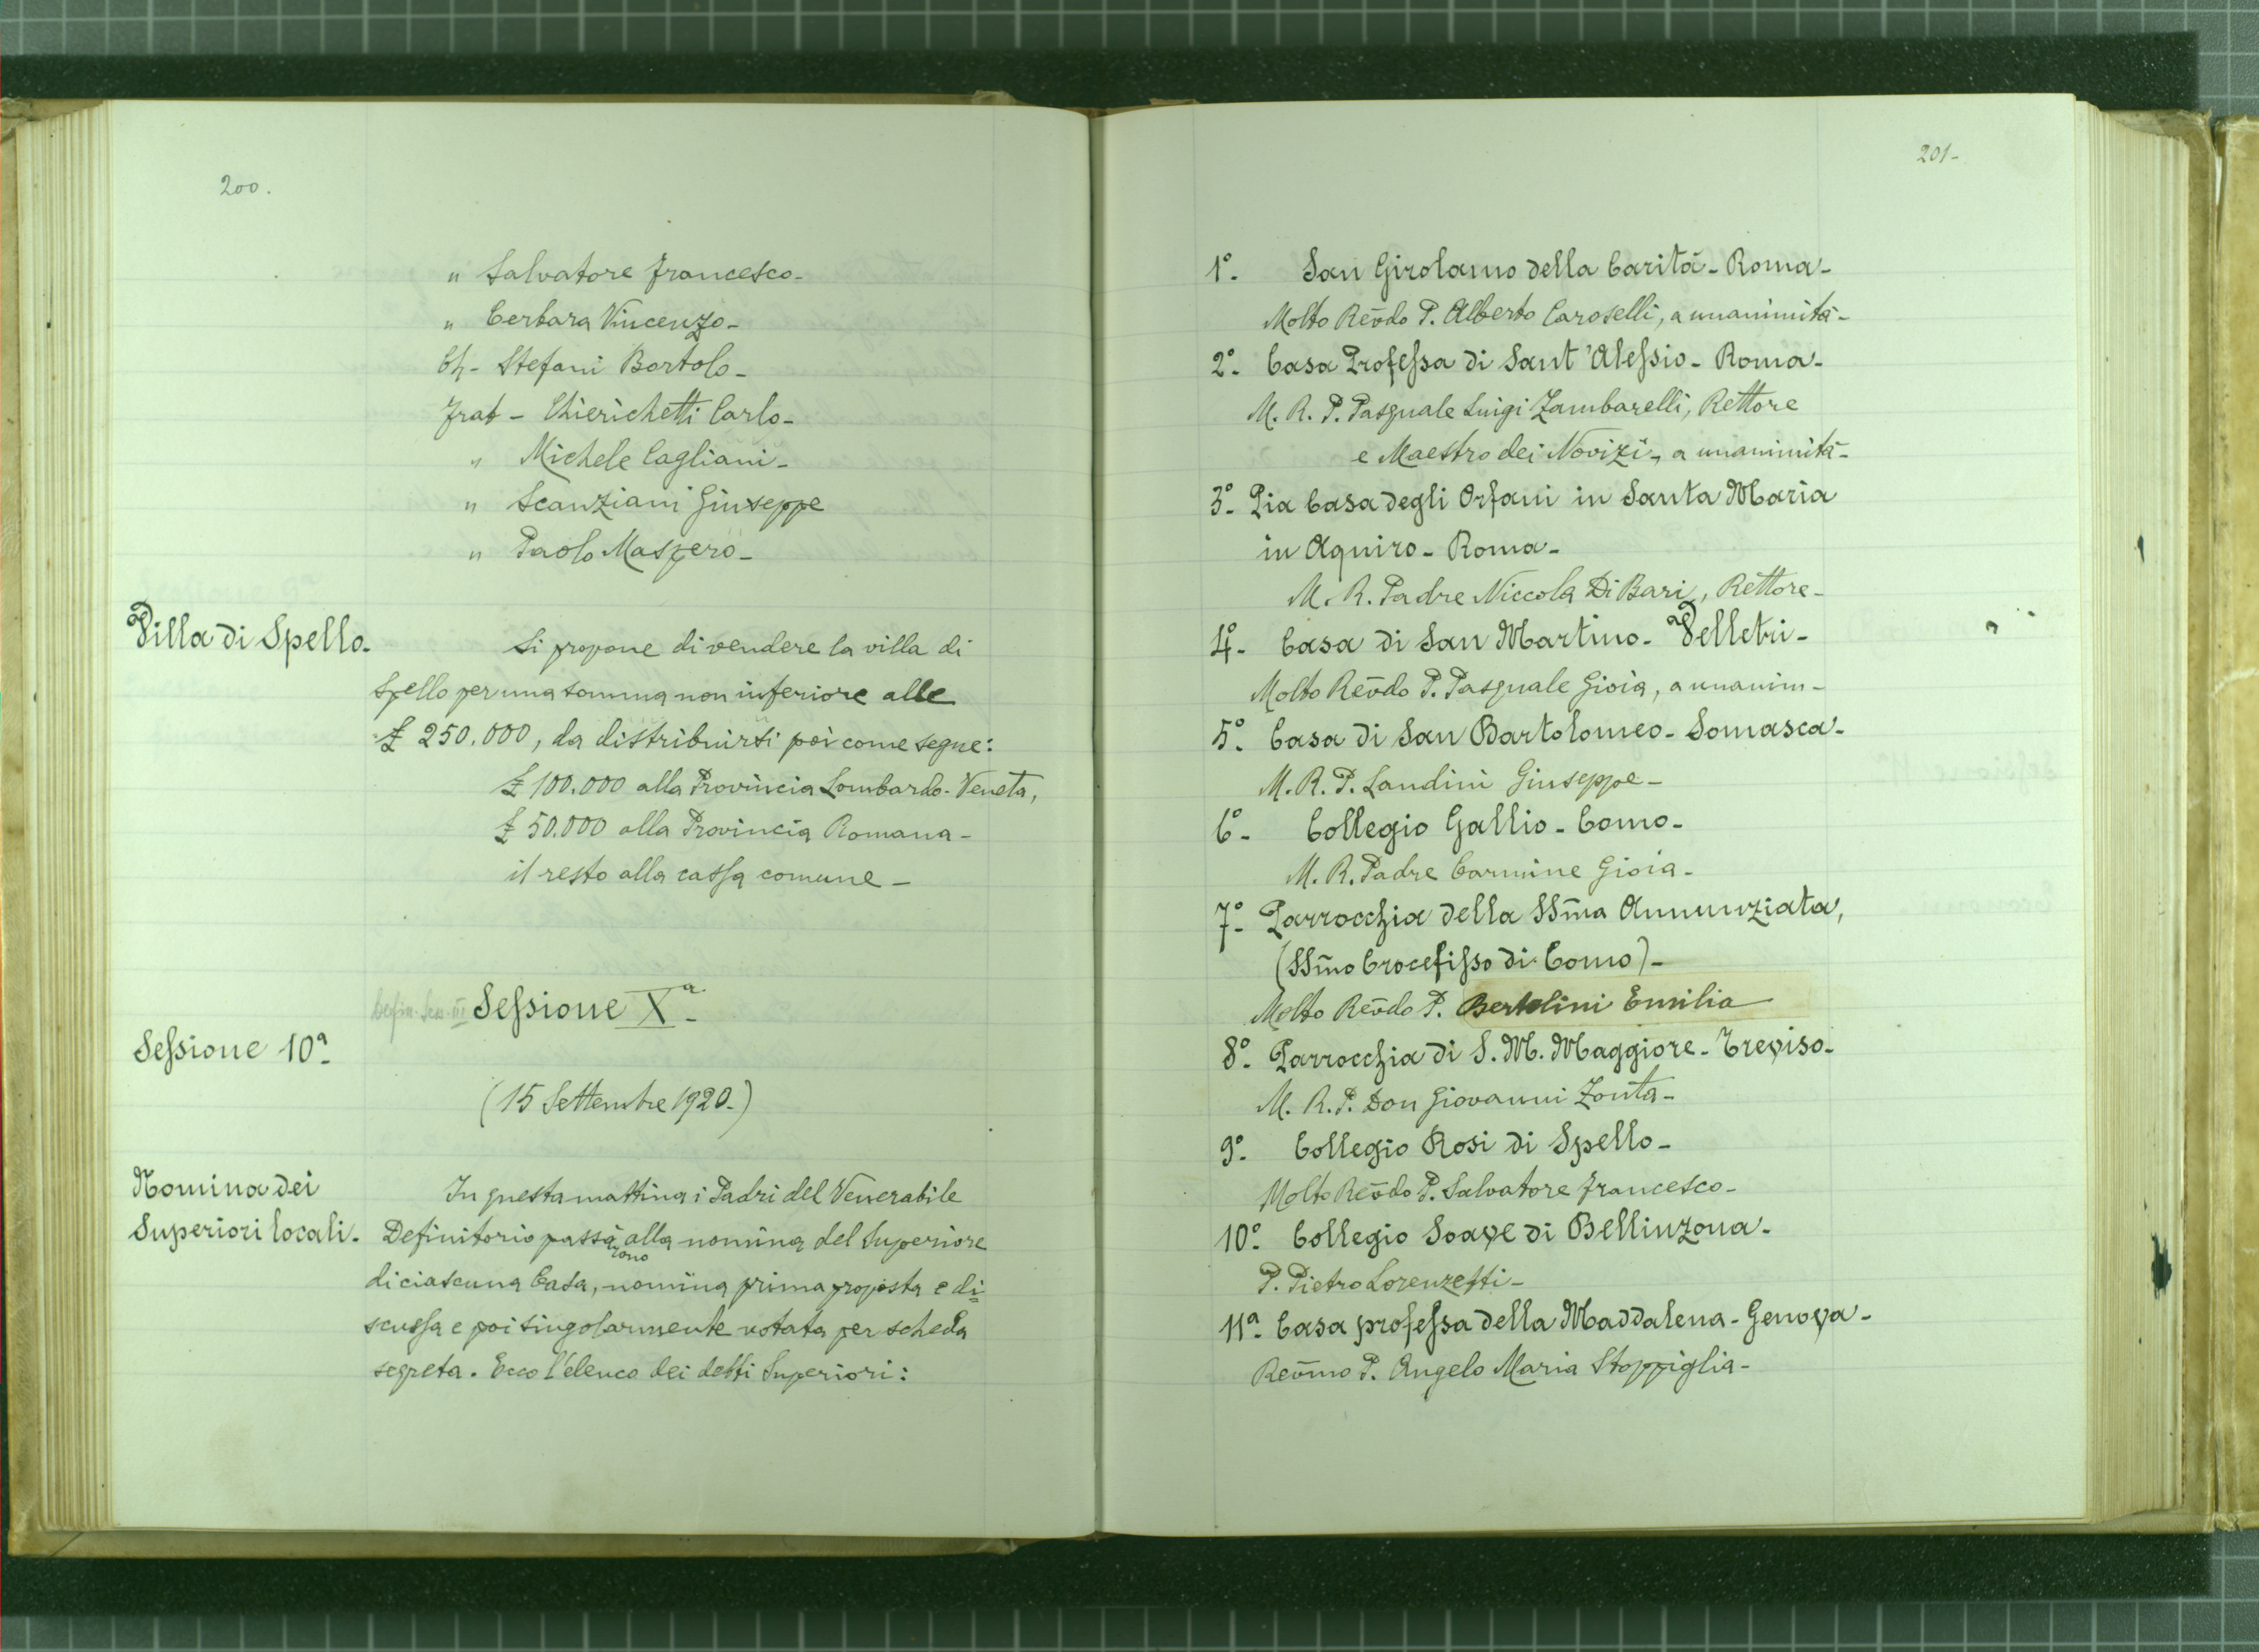 200.
" Salvatore Francesco-
" Cerbara Vincenzo-
Ch- Stefani Bortolo-
Frat- Chierichetti Carlo-
" Michele Cagliani-
" Scanziani Giuseppe
" Paolo Maspero-
Villa di Spello-
Si propone di vendere la villa di
Spello per una somma non inferiore alle
£ 250.000, da distribuirsi poi come segue:
£ 100.000 alla Provincia Lombardo-Veneta,
£ 50.000 alla Provincia Romana-
il resto alla cassa comune-
Defin. Sess. III Sessione Xª-
Sessione 10ª-
(15 Settembre 1920-)
Nomina dei
Superiori locali-
In questa mattina i Padri del Venerabile
Definitorio passà alla nomina del Superiore
rono
di ciascuna Casa, nomina prima proposta e di=
scussa e poi singolarmente votata per scheda
segreta. Ecco l'elenco dei detti Superiori:
201-
1°- San Girolamo della Carità- Roma-
Molto Rev̄do P. Alberto Caroselli, a unanimità-
2°- Casa Professa di Sant'Alessio- Roma-
M. R. P. Pasquale Luigi Zambarelli, Rettore
e Maestro dei Novizi-, a unanimità-
3°- Pia Casa degli Orfani in Santa Maria
in Aquiro- Roma-
M. R. Padre Niccola Di Bari, Rettore-
4°- Casa di San Martino- Velletri-
Molto Rev̄do P. Pasquale Gioia, a unanim-
5°- Casa di San Bartolomeo- Somasca-
M. R. P. Landini Giuseppe-
6°- Collegio Gallio- Como-
M. R. Padre Carmine Gioia-
7°- Parrocchia della SSm̄a Annunziata,
(SSm̄o Crocefisso di Como)-
Molto Rev̄do P. Bertolini Emilia
8°- Parrocchia di S. M. Maggiore- Treviso-
M. R. P. Don Giovanni Zonta-
9°- Collegio Rosi di Spello-
Molto Rev̄do P. Salvatore Francesco-
10°- Collegio Soave di Bellinzona-
P. Pietro Lorenzetti-
11ª- Casa professa della Maddalena- Genova-
Rev̄mo P. Angelo Maria Stoppiglia-